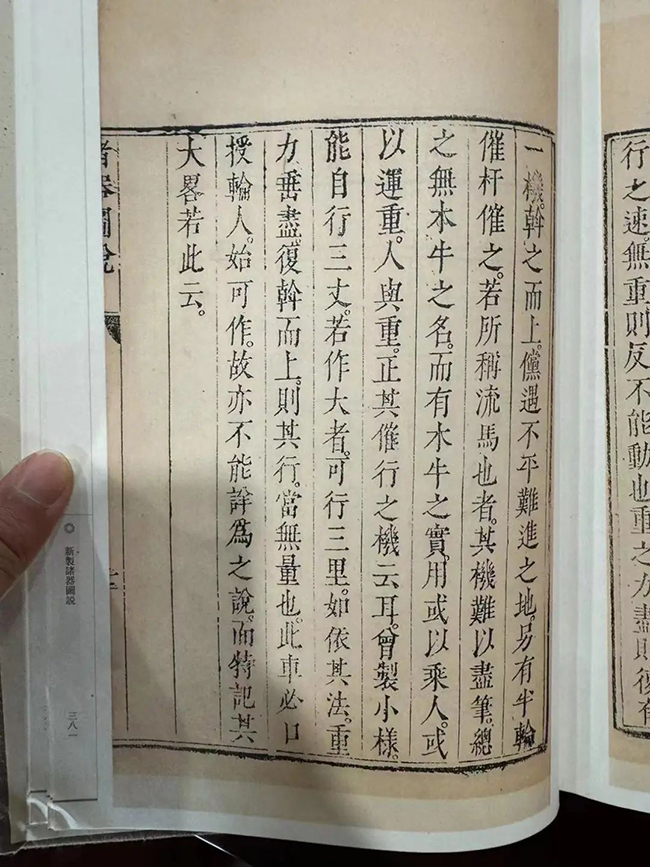 行之速。無重則反不能動也重之力盡則復有
一機。斡之而上。儻遇不平難進之地。另有半輪
催杆催之。若所稱流馬也者。其機難以盡筆。總
之無木牛之名。而有木牛之實。用或以乘人。或
以運重。人與重。正其催行之機云耳。曾製小樣。
能自行三丈。若作大者。可行三里。如依其法。重
力垂盡。復斡而上。則其行。當無量也。此車必口
授輪人。始可作。故亦不能詳爲之說。而特記其
大畧若此云。
諸器圖說
新製諸器圖説
三八一